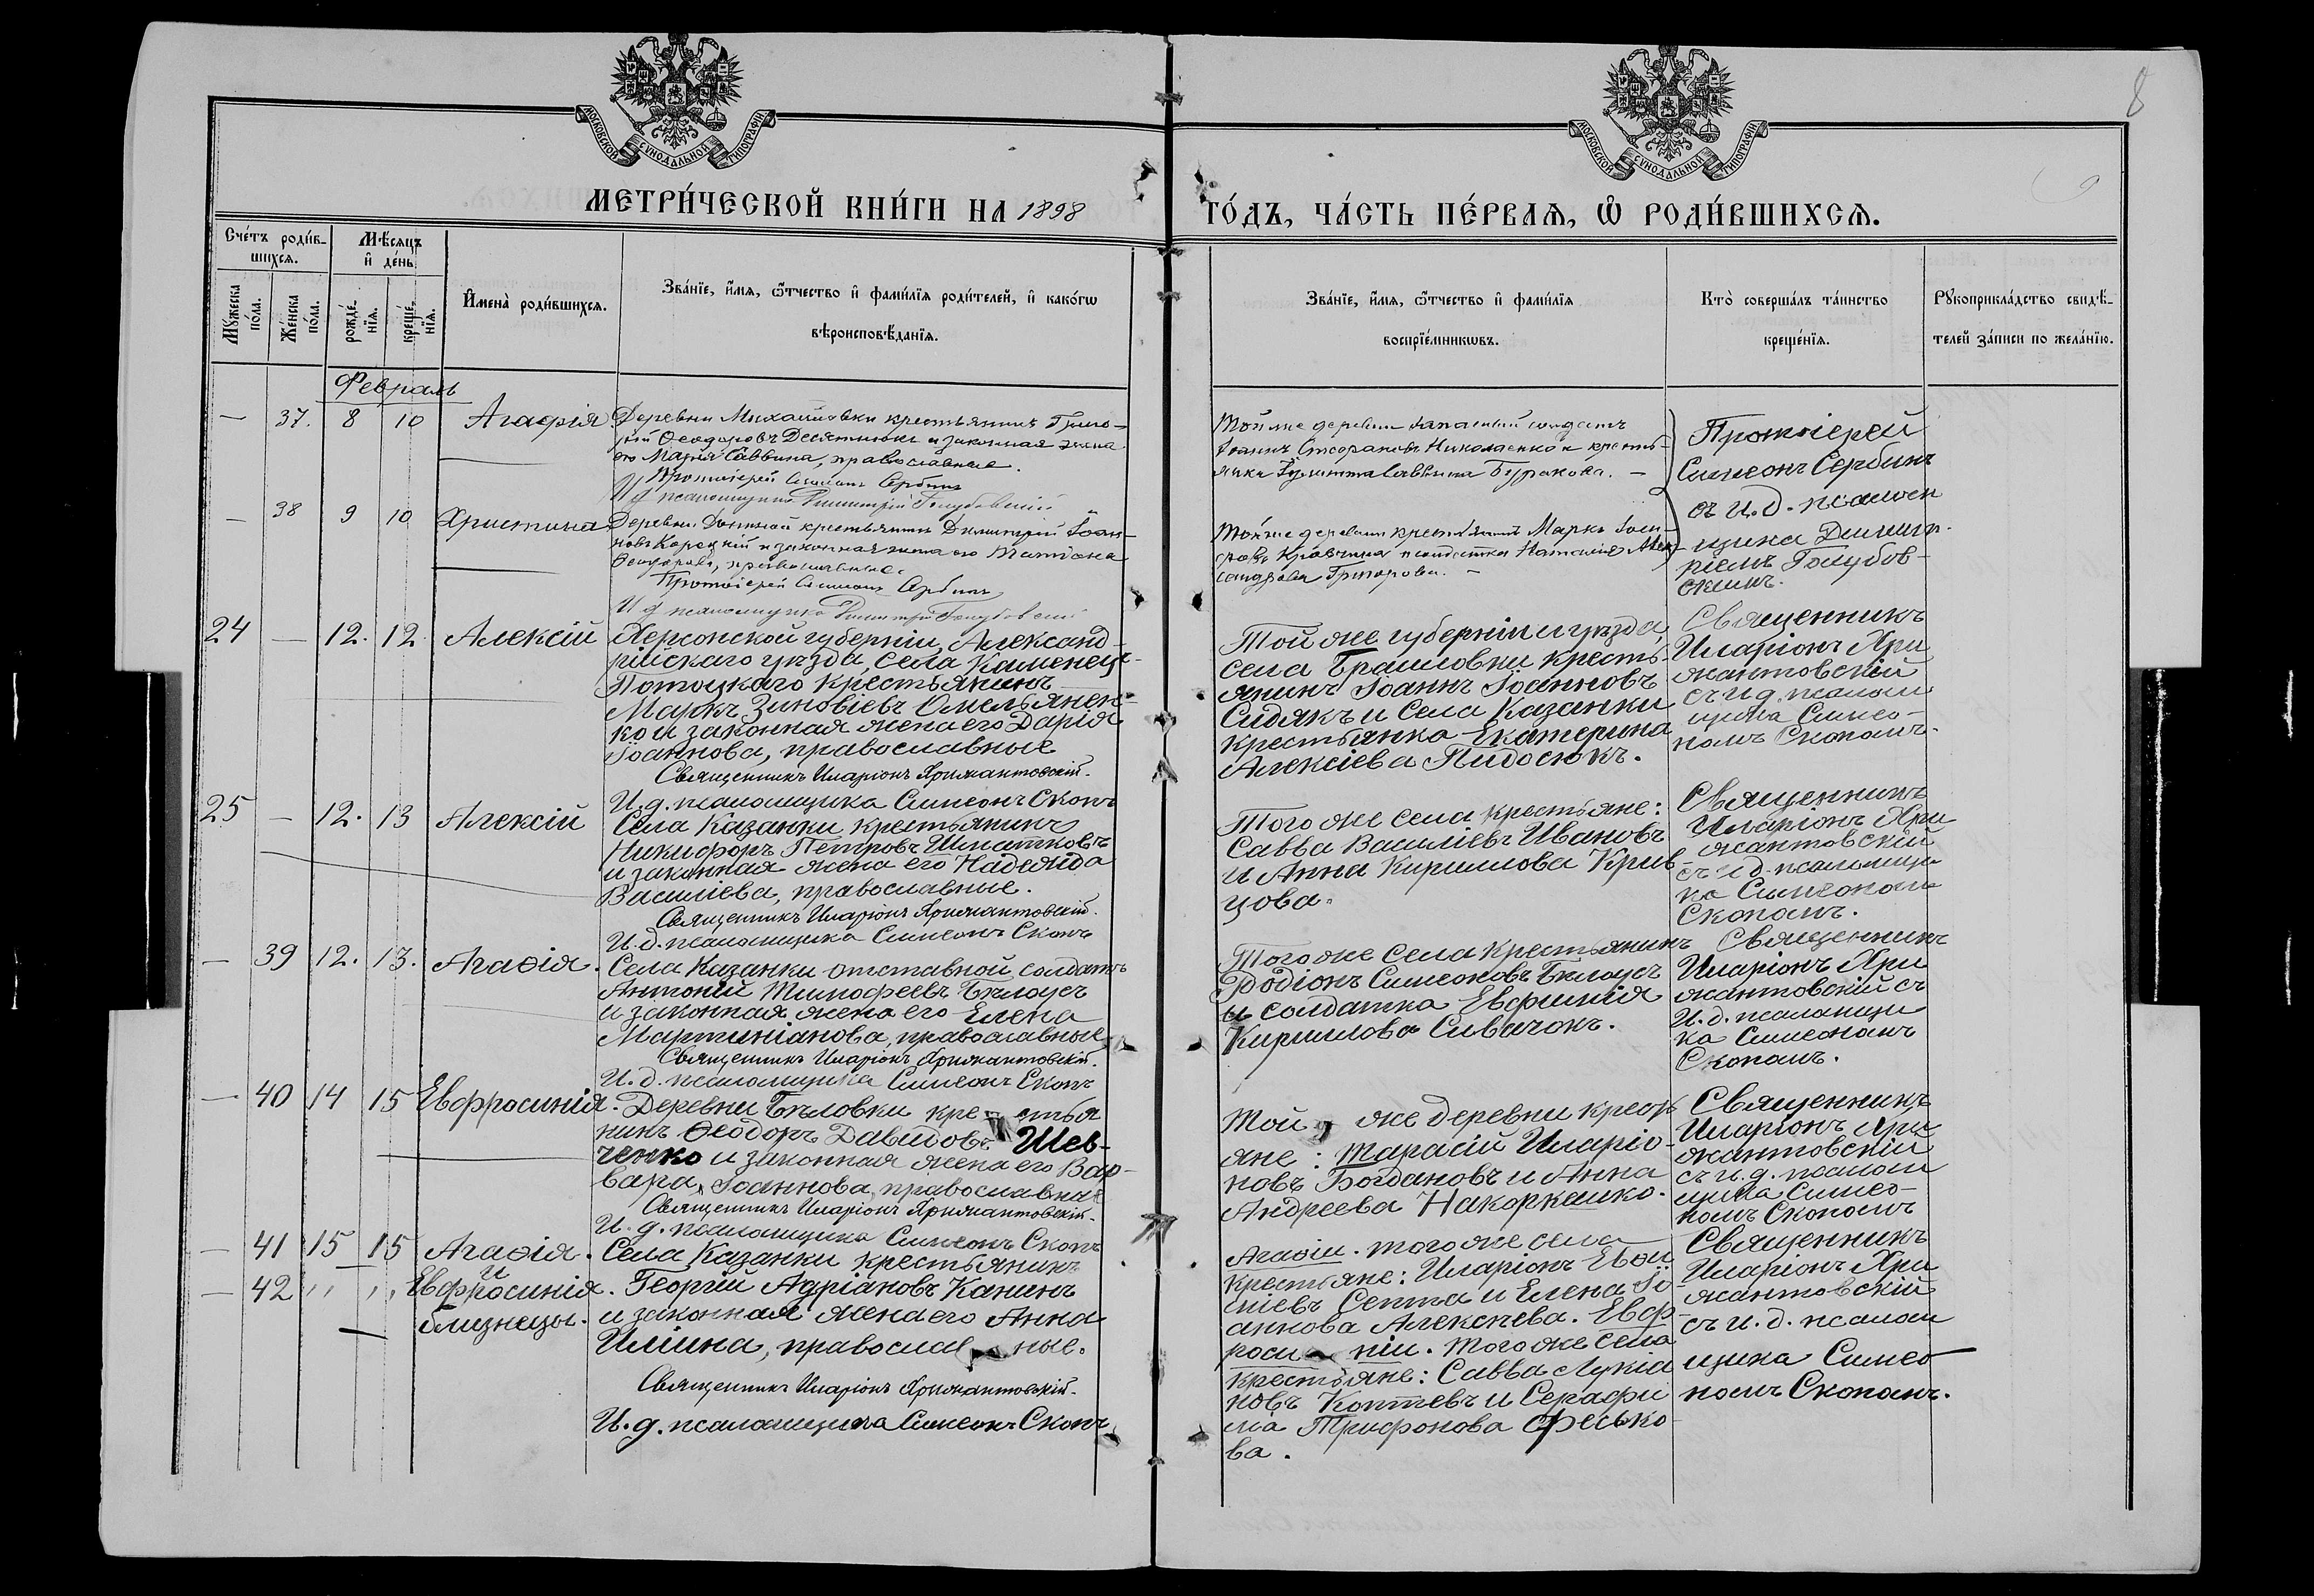 8
МОСКОВСКОЙ СѴНОДАЛЬНОЙ ТИПОГРАФІИ
МОСКОВСКОЙ СѴНОДАЛЬНОЙ ТИПОГРАФІИ
МЕТРИ́ЧЕСКОЙ КНИ́ГИ НА 1898
ГО́ДЪ, ЧА́СТЬ ПЕ́РВАѦ, Ѡ РОДИ́ВШИХСѦ.
Сче́тъ роди́в-
шихсѧ.
Мꙋ́жеска
по́ла.
Же́нска
по́ла.
Мѣ́сѧцъ
и де́нь
рожде́-
нїѧ.
креще́-
нїѧ.
Имена̀ роди́вшихсѧ.
Зва́нїе, и́мѧ, ѻ́тчество и фами́лїѧ роди́телей, и како́гѡ
вѣроисповѣ́данїѧ.
Зва́нїе, и́мѧ, ѻ́тчество и фами́лїѧ
воспрїе́мникѡвъ.
Кто̀ соверша́лъ та́инство
креще́нїѧ.
Рꙋкоприкла́дство свидѣ́-
телей за́писи по жела́нїю.
Февраль
— 37. 8 10 Агафія
Деревни Михайловки крестьянинъ Григо-
рій Ѳеодоровъ Десятнюкъ и законная жена
его Марія Саввина, православные.
Протоіерей Симеонъ Сербинъ
И д псаломщика Димитрій Голубовскій
Той же деревни запасный солдатъ
Іоаннъ Стефановъ Николаенко и кресть-
янка Саввина Буракова. —
Протоіерей
Симеонъ Сербинъ
съ И. д. псалом
щика Димитр-
ріемъ Голубов-
скимъ.
— 38 9 10 Христина
Деревни крестьянинъ Димитрій Іоан-
новъ Корецкій и законная жена его Татіана
Ѳеодорова, православные.
Протоіерей Симеонъ Сербинъ
И д псаломщика Димитрій Голубовскій
Той же деревни крестьянинъ Маркъ
Кравчина и солдатка Наталія Алек-
сандрова Григорова. —
24 — 12. 12 Алексій
Херсонской губерніи, Александ-
рійскаго уѣзда, села Каменец-
Потоцкаго крестьянинъ
Маркъ Зиновіевъ Омельянен-
ко и законная жена его Дарія
Іоаннова, православные
Священникъ Иларіонъ Крижантовскій.
И. д. псаломщика Симеонъ Скопъ
Той же губерніи и уѣзда,
села Браиловки кресть-
янинъ Іоаннъ Іоанновъ
Сидякъ и Села Казанки
крестьянка Екатерина
Алексіева Пидосюкъ.
Священникъ
Иларіонъ Кри
жантовскій
съ и д. псалом
щика Симео-
номъ Скопомъ.
25 — 12. 13 Алексій
Села Казанки крестьянинъ
Никифоръ Петровъ Шматковъ
и законная жена его Надежда
Василіева, православные.
Священникъ Иларіонъ Крижантовскій.
И. д. псаломщика Симеонъ Скопъ
Того же села крестьяне:
Савва Василіевъ Ивановъ
и Анна Кириллова Крив-
цова.
Священникъ
Иларіонъ Кри
жантовскій
съ и д. псаломщи
ка Симеономъ
Скопомъ.
— 39 12. 13. Агаѳія.
Села Казанки отставной солдатъ
Антоній Тимофеевъ Бѣлоусъ
и законная жена его Елена
Мартиніанова, православные
Священникъ Иларіонъ Крижантовскій.
И. д. псаломщика Симеонъ Скопъ
Того же Села крестьянинъ
Родіонъ Симеоновъ Бѣлоусъ
и солдатка Евфимія
Кириллова Сивачокъ.
Священникъ
Иларіонъ Кри
жантовскій съ
И. д. псаломщи
ка Симеономъ
Скопомъ.
— 40 14 15 Евфросинія.
Деревни Бѣловки кре стья
нинъ Ѳеодоръ Давидовъ Шев-
ченко и законная жена его Вар-
вара Іоаннова, православные
Священникъ Иларіонъ Крижантовскій.
И. д. псаломщика Симеонъ Скопъ
Той же деревни крест
яне: Тарасій Иларіо-
новъ Богдановъ и Анна
Андреева Накоркешко.
Священникъ
Иларіонъ Кри
жантовскій
съ и. д. псалом
щика Симео-
номъ Скопомъ
— 41 15 15 Агаѳія.
и
— 42 " " " " Евфросинія.
близнецы.
Села Казанки крестьянинъ
Георгій Адріановъ Канинъ
и законная жена его Анна
Иліина, православ ные.
Священникъ Иларіонъ Крижантовскій.
И. д. псаломщика Симеонъ Скопъ
Агаѳіи. того же села
крестьяне: Иларіонъ Евѳи
міевъ Септа и Елена Іо
аннова Алексѣева. Евф-
роси ніи. того же села
крестьяне: Савва Лукіа
новъ Коптевъ и Серафи
ма Трифонова Фесько-
ва.
Священникъ
Иларіонъ Кри
жантовскій
съ и. д. псалом
щика Симео
номъ Скопомъ.